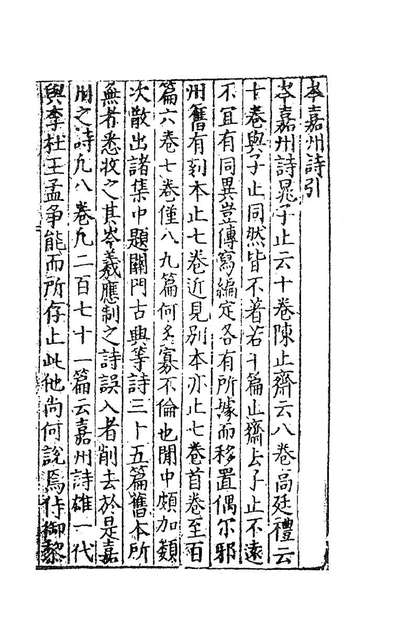 岑嘉州詩引
岑嘉州詩晁子止云十卷陳止齋云八卷高廷禮云
十卷與子止同然皆不著若干篇止齋去子止不遠
不宜有同異豈傳寫編定各有所據而移置偶尔邪
州舊有刻本止七卷近見別本亦止七卷首卷至百
篇六卷七卷僅八九篇何多寡不倫也閒中頗加類
次散出諸集中題關門古興等詩三十五篇舊本所
無者悉收之其岑羲應制之詩誤入者削去於是嘉
州之詩凡八卷凡二百七十一篇云嘉州詩雄一代
與李杜王孟爭能而所存止此他尚何說焉侍御黎